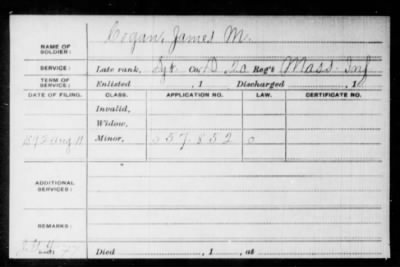 NAME OF SOLDIER: Cogan, James M.
SERVICE: Late rank, Sgt. Co. B, 20 Reg't Mass. Inf
TERM OF SERVICE: Enlisted , 1 Discharged , 1
DATE OF FILING. CLASS. APPLICATION NO. LAW. CERTIFICATE NO.
Invalid,
Widow,
Aug 11 Minor, 557.852 0
ADDITIONAL SERVICES:
REMARKS:
Died , 1 , at